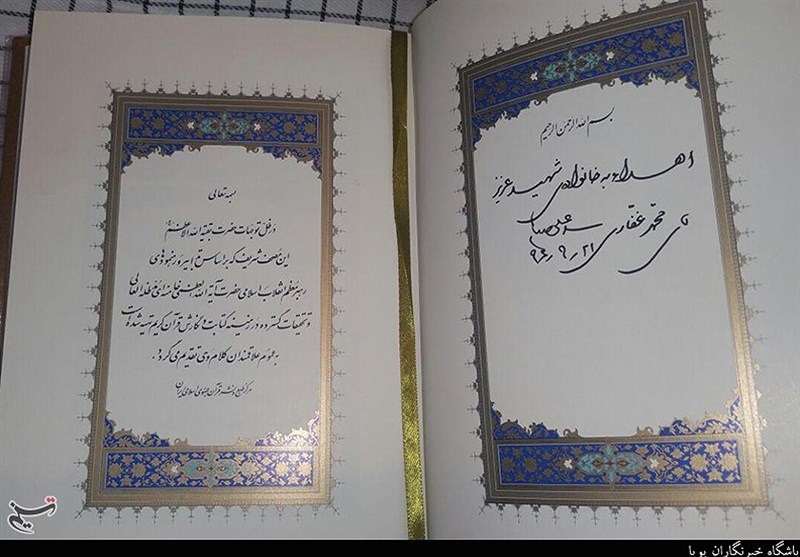 بسم الله الرحمن الرحیم
اهداء به خانواده‌ی شهید عزیز
قای محمد غفاری
سید علی
بسمه تعالی
در ظل توجهات حضرت بقیة الله الاعظم
این مصحف شریف که بر اساس تدابیر و رهنمودهای
رهبر معظم انقلاب اسلامی حضرت آیة الله العظمی خامنه‌ای مدظله العالی
و تحقیقات گسترده در زمینه کتابت و نگارش قرآن کریم تهیه شده است
به عموم علاقمندان کلام وحی تقدیم می‌گردد .
مرکز طبع و نشر قرآن جمهوری اسلامی ایران
تسنیم
باشگاه خبرنگاران پویا